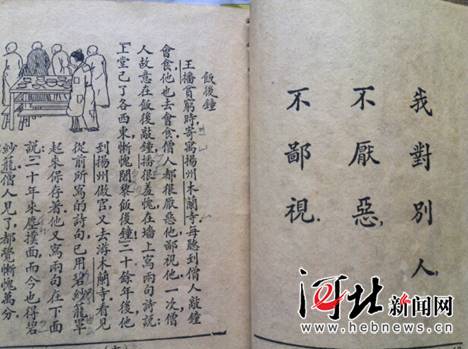 我對別人,
不厭惡,
不鄙視.
飯後鐘
王播貧窮時,寄寓揚州木蘭寺,每聽到僧人敲鐘
會食,他也去會食,僧人都很厭惡他,鄙視他.一次,僧
人故意在飯後敲鐘,播很羞愧,在墙上寫兩句詩說:
「上堂已了各西東,慚愧闍黎飯後鐘」二十餘年後,他
到揚州做官,又去游木蘭寺,看見
從前所寫的詩句,已用碧紗籠罩
起來保存著,他又寫兩句在下面
說:「二十年來塵撲面,而今也得碧
紗籠」僧人見了,都覺慚愧萬分.
河北新闻网
www.hebnews.cn